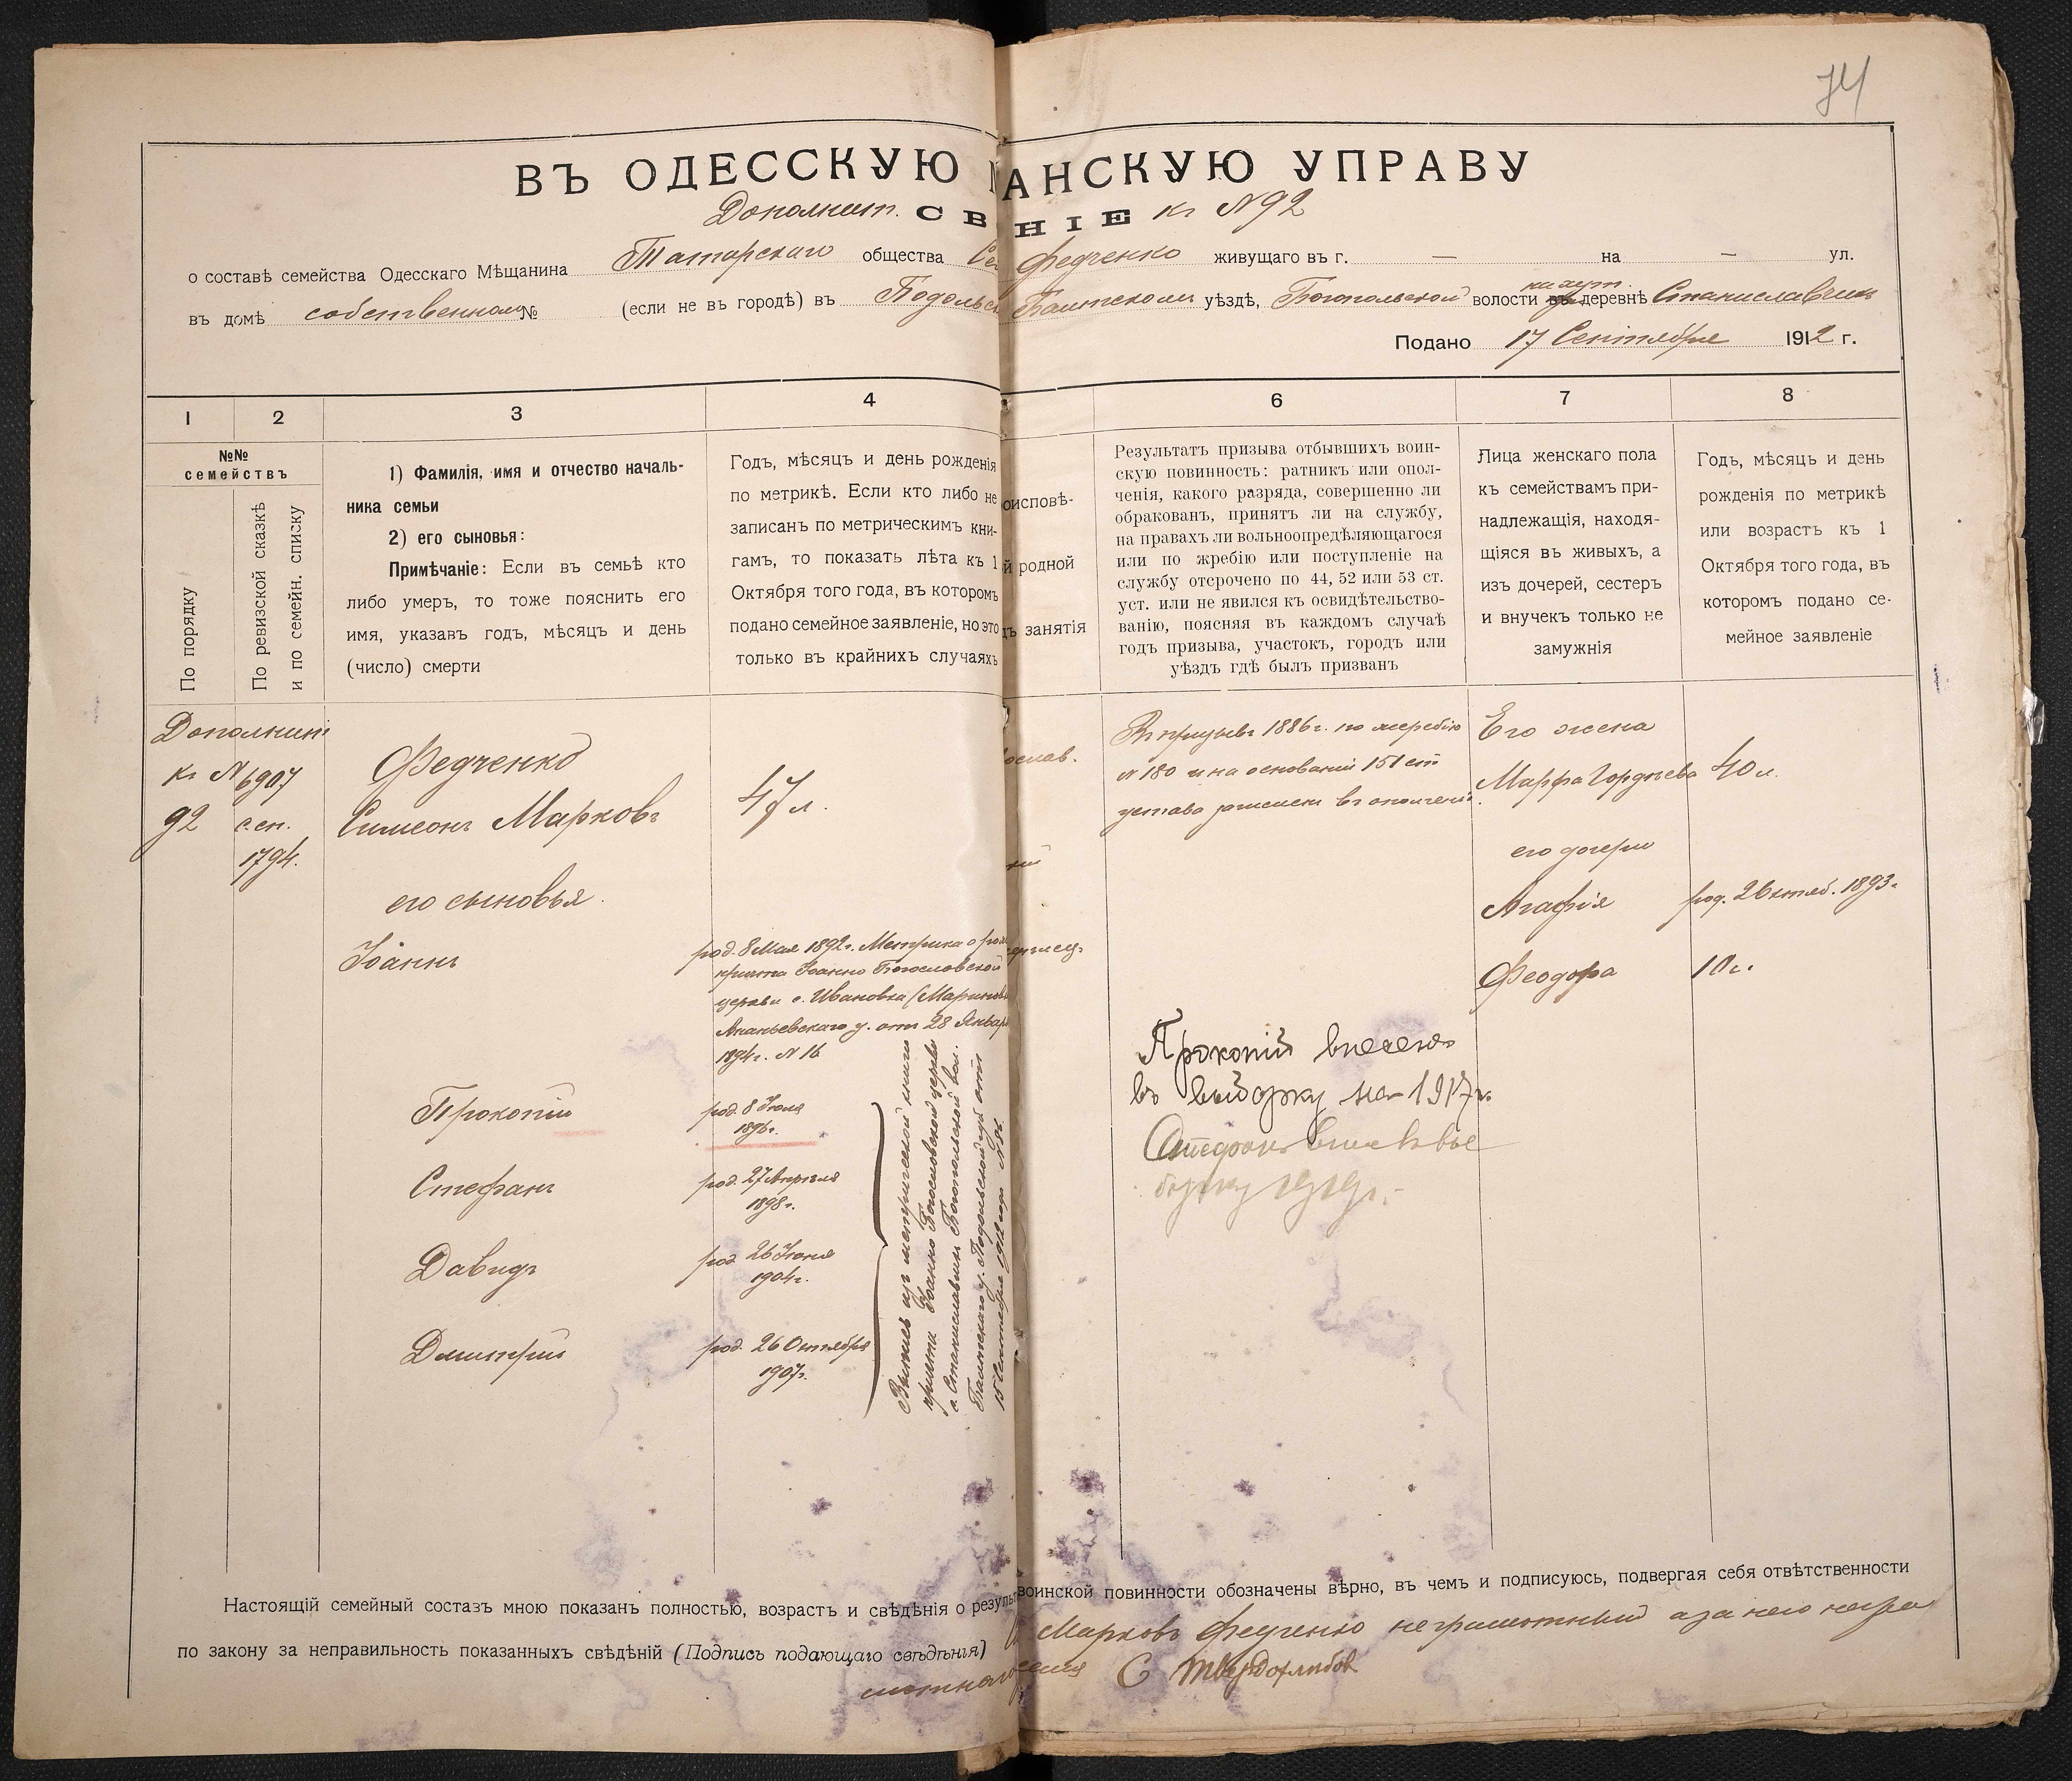 74
ВЪ ОДЕССКУЮ АНСКУЮ УПРАВУ
Дополнит. СВ НІЕ къ №92
о составѣ семейства Одесскаго Мѣщанина Татарскаго общества Се Федченко живущаго въ г. — на — ул.
въ домѣ собственном № (если не въ городѣ) въ Подольск Балтском уѣздѣ, Богопольской волости деревнѣ Станиславчик
Подано 17 Сентября 1912 г.
1 2 3 4 6 7 8
№№
семействъ
По порядку
По ревизской сказкѣ
и по семейн. списку
1) Фамилія, имя и отчество началь-
ника семьи
2) его сыновья:
Примѣчаніе: Если въ семьѣ кто
либо умеръ, то тоже пояснить его
имя, указавъ годъ, мѣсяцъ и день
(число) смерти
Годъ, мѣсяцъ и день рожденія
по метрикѣ. Если кто либо не
записанъ по метрическимъ кни-
гамъ, то показать лѣта къ 1
Октября того года, въ которомъ
подано семейное заявленіе, но это
только въ крайнихъ случаяхъ
оисповѣ-
й родной
ъ занятія
Результатъ призыва отбывшихъ воин-
скую повинность: ратникъ или опол-
ченія, какого разряда, совершенно ли
обракованъ, принятъ ли на службу,
на правахъ ли вольноопредѣляющагося
или по жребію или поступленіе на
службу отсрочено по 44, 52 или 53 ст.
уст. или не явился къ освидѣтельство-
ванію, поясняя въ каждомъ случаѣ
годъ призыва, участокъ, городъ или
уѣздъ гдѣ былъ призванъ
Лица женскаго пола
къ семействамъ при-
надлежащія, находя-
щіяся въ живыхъ, а
изъ дочерей, сестеръ
и внучекъ только не
замужнія
Годъ, мѣсяцъ и день
рожденія по метрикѣ
или возрастъ къ 1
Октября того года, въ
которомъ подано се-
мейное заявленіе
Дополнит
къ №
92
6907
с.сп.
1794.
Федченко
Симеонъ Марковъ
47 л.
ослав.
Въ призывъ 1886 г. по жеребію
№ 180 и на основаніи 151 ст
устава зачислен въ ополченіе
Его жена
Марфа Гордѣева 40 л.
его дочери
Агафія
Феодора 10 г.
его сыновья
Іоаннъ
род. 8 Мая 1892 г. Метрика о рож
причта Іоанно Богословской
церкви с. Ивановка (Маринов
Ананьевскаго у. отъ 28 Января
1894 г. № 16
Прокопій род. 8 Іюля
1896 г.
Стефанъ род. 27 Апрѣля
1898 г.
Давидъ род. 26 Іюня
1904 г.
Дмитрій род. 26 Октября
1907 г.
Выпись изъ метрической книги
причта Іоанно Богословской церкви
с. Станиславчик Богопольской вол.
Балтскаго у. Подольской губ отъ
15 Сентября 1912 года
Прокопій внесенъ
въ выборку на 1917 г.
Стефанъ внес въ вы
борку 1919 г.
Настоящій семейный составъ мною показанъ полностью, возрастъ и свѣдѣнія о резуль воинской повинности обозначены вѣрно, въ чемъ и подписуюсь, подвергая себя отвѣтственности
по закону за неправильность показанныхъ свѣдѣній (Подпись подающаго свѣдѣнія) Марковъ Федченко неграмотный а за него
С Твердохлибов